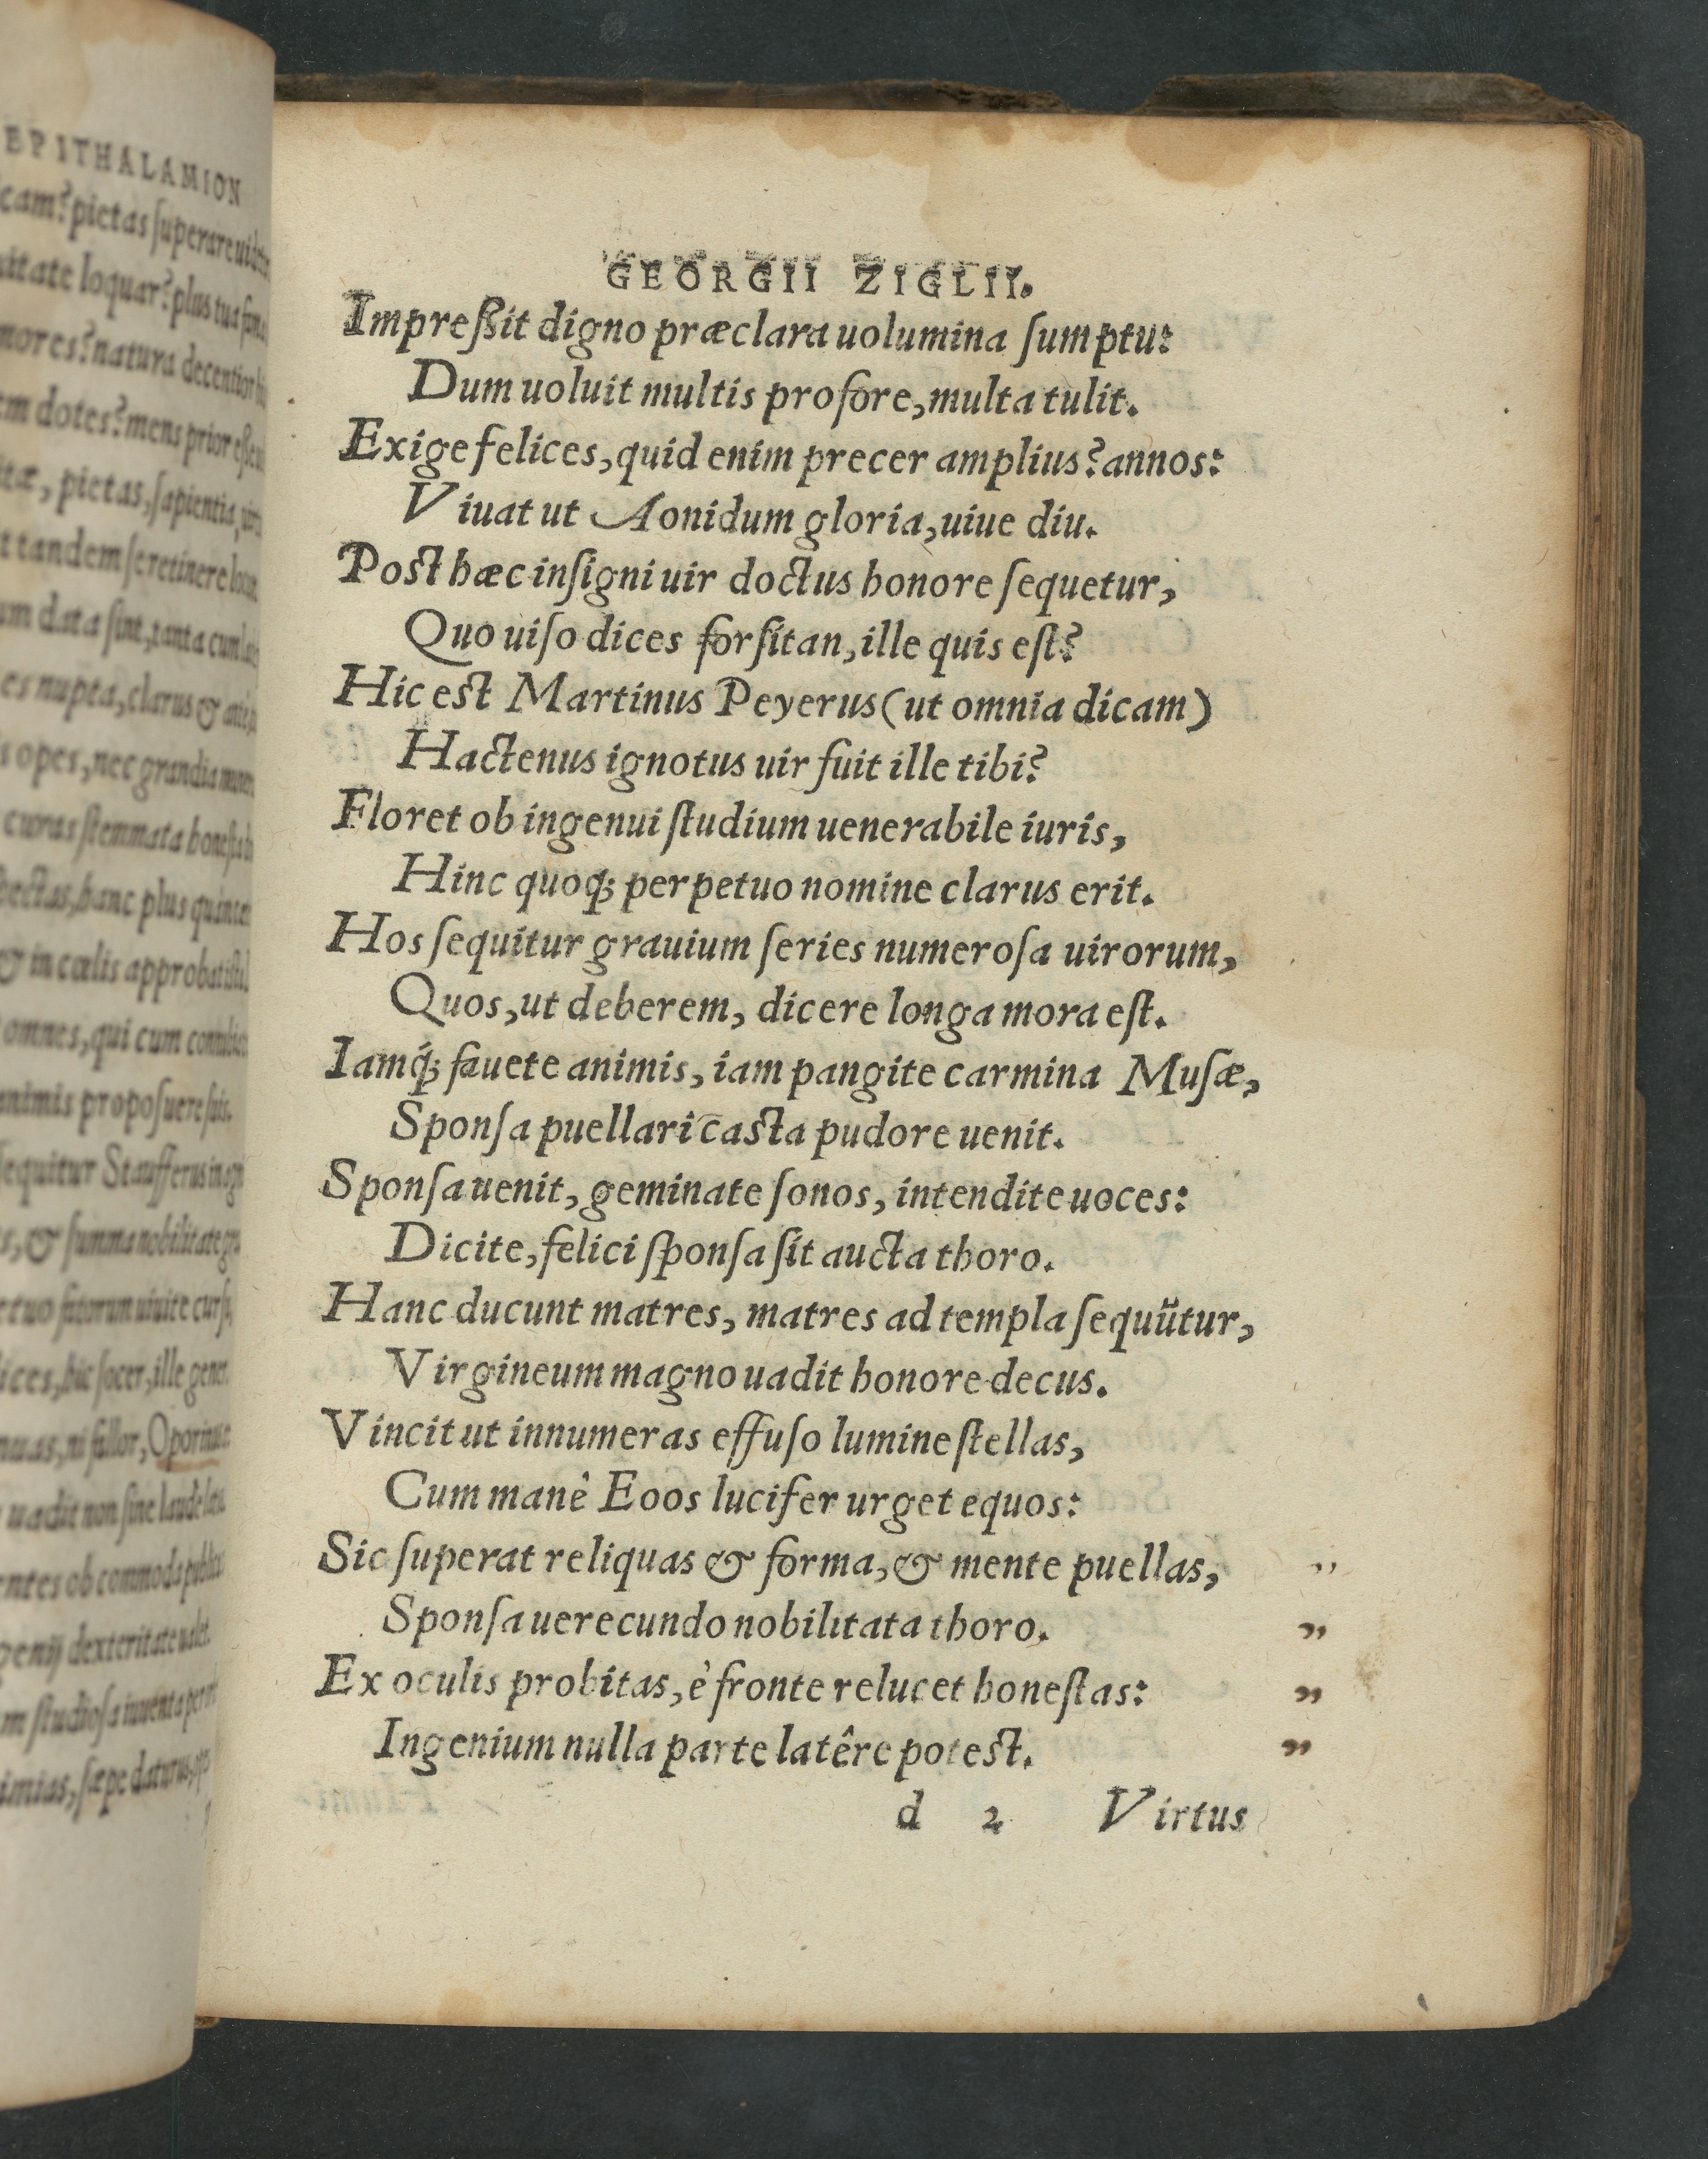 EPITHALAMION
cam? pietas ſuperare
uitate loquar? plus tua
mores? natura decentior
em dotes? mens prior
itæ, pietas, ſapientia,
t tandem ſe retinere
um data ſint, tanta
es nupta, clarus &
s opes, nec grandia
curas ſtemmata
hanc plus
& in cœlis approbat
omnes, qui cum
animis propoſuere ſuis.
ſequitur Staufferus
s, & ſumma nobilitate
etuo fatorum uiuite curſu,
ices, hic ſocer, ille gener.
ni fallor, Oporinus
uadit non ſine laude
entes ob commoda
genij dexteritate ualet.
m ſtudioſa iuuenta
imias, ſæpe daturus,
GEORGII ZIGLII.
Impreßit digno præclara uolumina ſumptu:
Dum uoluit multis profore, multa tulit.
Exige felices, quid enim precer amplius? annos:
Viuat ut Aonidum gloria, uiue diu.
Post hæc inſigni uir doctus honore ſequetur,
Quo uiſo dices forſitan, ille quis eſt?
Hic est Martinus Peyerus (ut omnia dicam)
Hactenus ignotus uir fuit ille tibi?
Floret ob ingenui ſtudium uenerabile iuris,
Hinc quoq; perpetuo nomine clarus erit.
Hos ſequitur grauium ſeries numeroſa uirorum,
Quos, ut deberem, dicere longa mora eſt.
Iamq́; fauete animis, iam pangite carmina Muſæ,
Sponſa puellari casta pudore uenit.
Sponſa uenit, geminate ſonos, intendite uoces:
Dicite, felici ſponſa ſit aucta thoro.
Hanc ducunt matres, matres ad templa ſequũtur,
Virgineum magno uadit honore decus.
Vincit ut innumeras effuſo lumine ſtellas,
Cum manè Eoos lucifer urget equos:
Sic ſuperat reliquas & forma, & mente puellas, ,,
Sponſa uerecundo nobilitata thoro. ,,
Ex oculis probitas, è fronte relucet honeſtas: ,,
Ingenium nulla parte latêre potest. ,,
d 2 Virtus